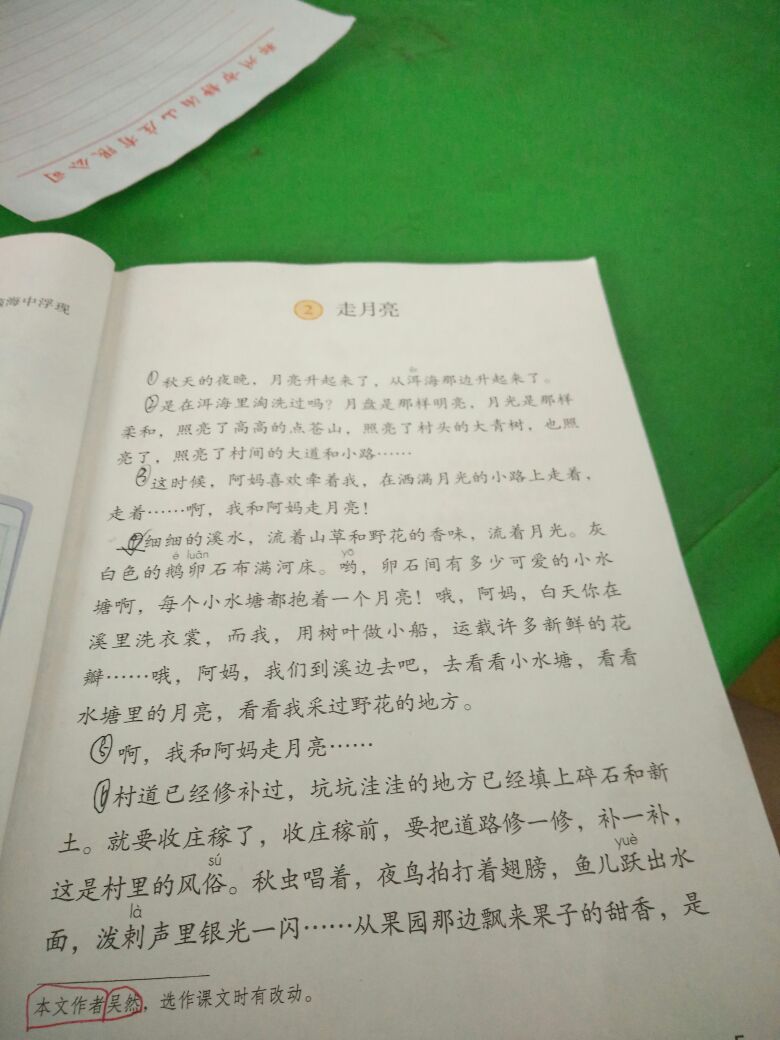 山庄有限公司
海中浮现
2 走月亮
①秋天的夜晚，月亮升起来了，从洱海那边升起来了。
②是在洱海里淘洗过吗？月盘是那样明亮，月光是那样
柔和，照亮了高高的点苍山，照亮了村头的大青树，也照
亮了，照亮了村间的大道和小路……
③这时候，阿妈喜欢牵着我，在洒满月光的小路上走着，
走着……啊，我和阿妈走月亮！
④细细的溪水，流着山草和野花的香味，流着月光。灰
é luǎn yō
白色的鹅卵石布满河床。哟，卵石间有多少可爱的小水
塘啊，每个小水塘都抱着一个月亮！哦，阿妈，白天你在
溪里洗衣裳，而我，用树叶做小船，运载许多新鲜的花
瓣……哦，阿妈，我们到溪边去吧，去看看小水塘，看看
水塘里的月亮，看看我采过野花的地方。
⑤啊，我和阿妈走月亮……
⑥村道已经修补过，坑坑洼洼的地方已经填上碎石和新
土。就要收庄稼了，收庄稼前，要把道路修一修，补一补，
sú yuè
这是村里的风俗。秋虫唱着，夜鸟拍打着翅膀，鱼儿跃出水
là
面，泼剌声里银光一闪……从果园那边飘来果子的甜香，是
本文作者吴然，选作课文时有改动。